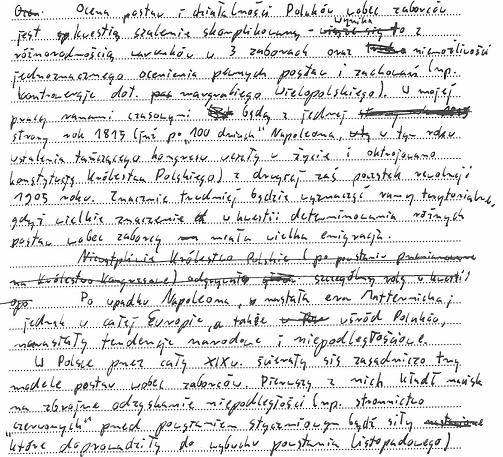 Ocena postaw i działalności Polaków wobec zaborców
jest kwestią szalenie skomplikowaną - wynika to z
różnorodnością warunków w 3 zaborach oraz niemożliwości
jednoznacznego ocenienia pewnych postaw i zachowań (np.
kontrowersje dot. margrabiego Wielopolskiego). W mojej
pracy ramami czasowymi będą z jednej
strony rok 1815 (już po „100 dniach" Napoleona, w tym roku
ustalenia tańczącego kongresu weszły w życie i oktrojowano
konstytucję Królestwa Polskiego) z drugiej zaś początek rewolucji
1905 roku. Znacznie trudniej będzie wyznaczyć ramy terytorialne,
gdyż wielkie znaczenie w kwestii determinowania różnych
postaw wobec zaborcy miała wielka emigracja.
Niewątpliwie Królestwo Polskie (po powstaniu przemianowane
na Królestwo Kongresowe) odgrywało szczególną rolę w kwestii
Po upadku Napoleona, nastała era Metternicha,
jednak w całej Europie, a także wśród Polaków,
narastały tendencje narodowe i niepodległościowe.
W Polsce przez cały XIXw. ścierały się zasadniczo trzy
modele postaw wobec zaborców. Pierwszy z nich kładł nacisk
na zbrojne odzyskanie niepodległości (np. stronnictwo
„czerwonych" przed powstaniem styczniowym bądź siły
które doprowadziły do wybuchu powstania listopadowego)